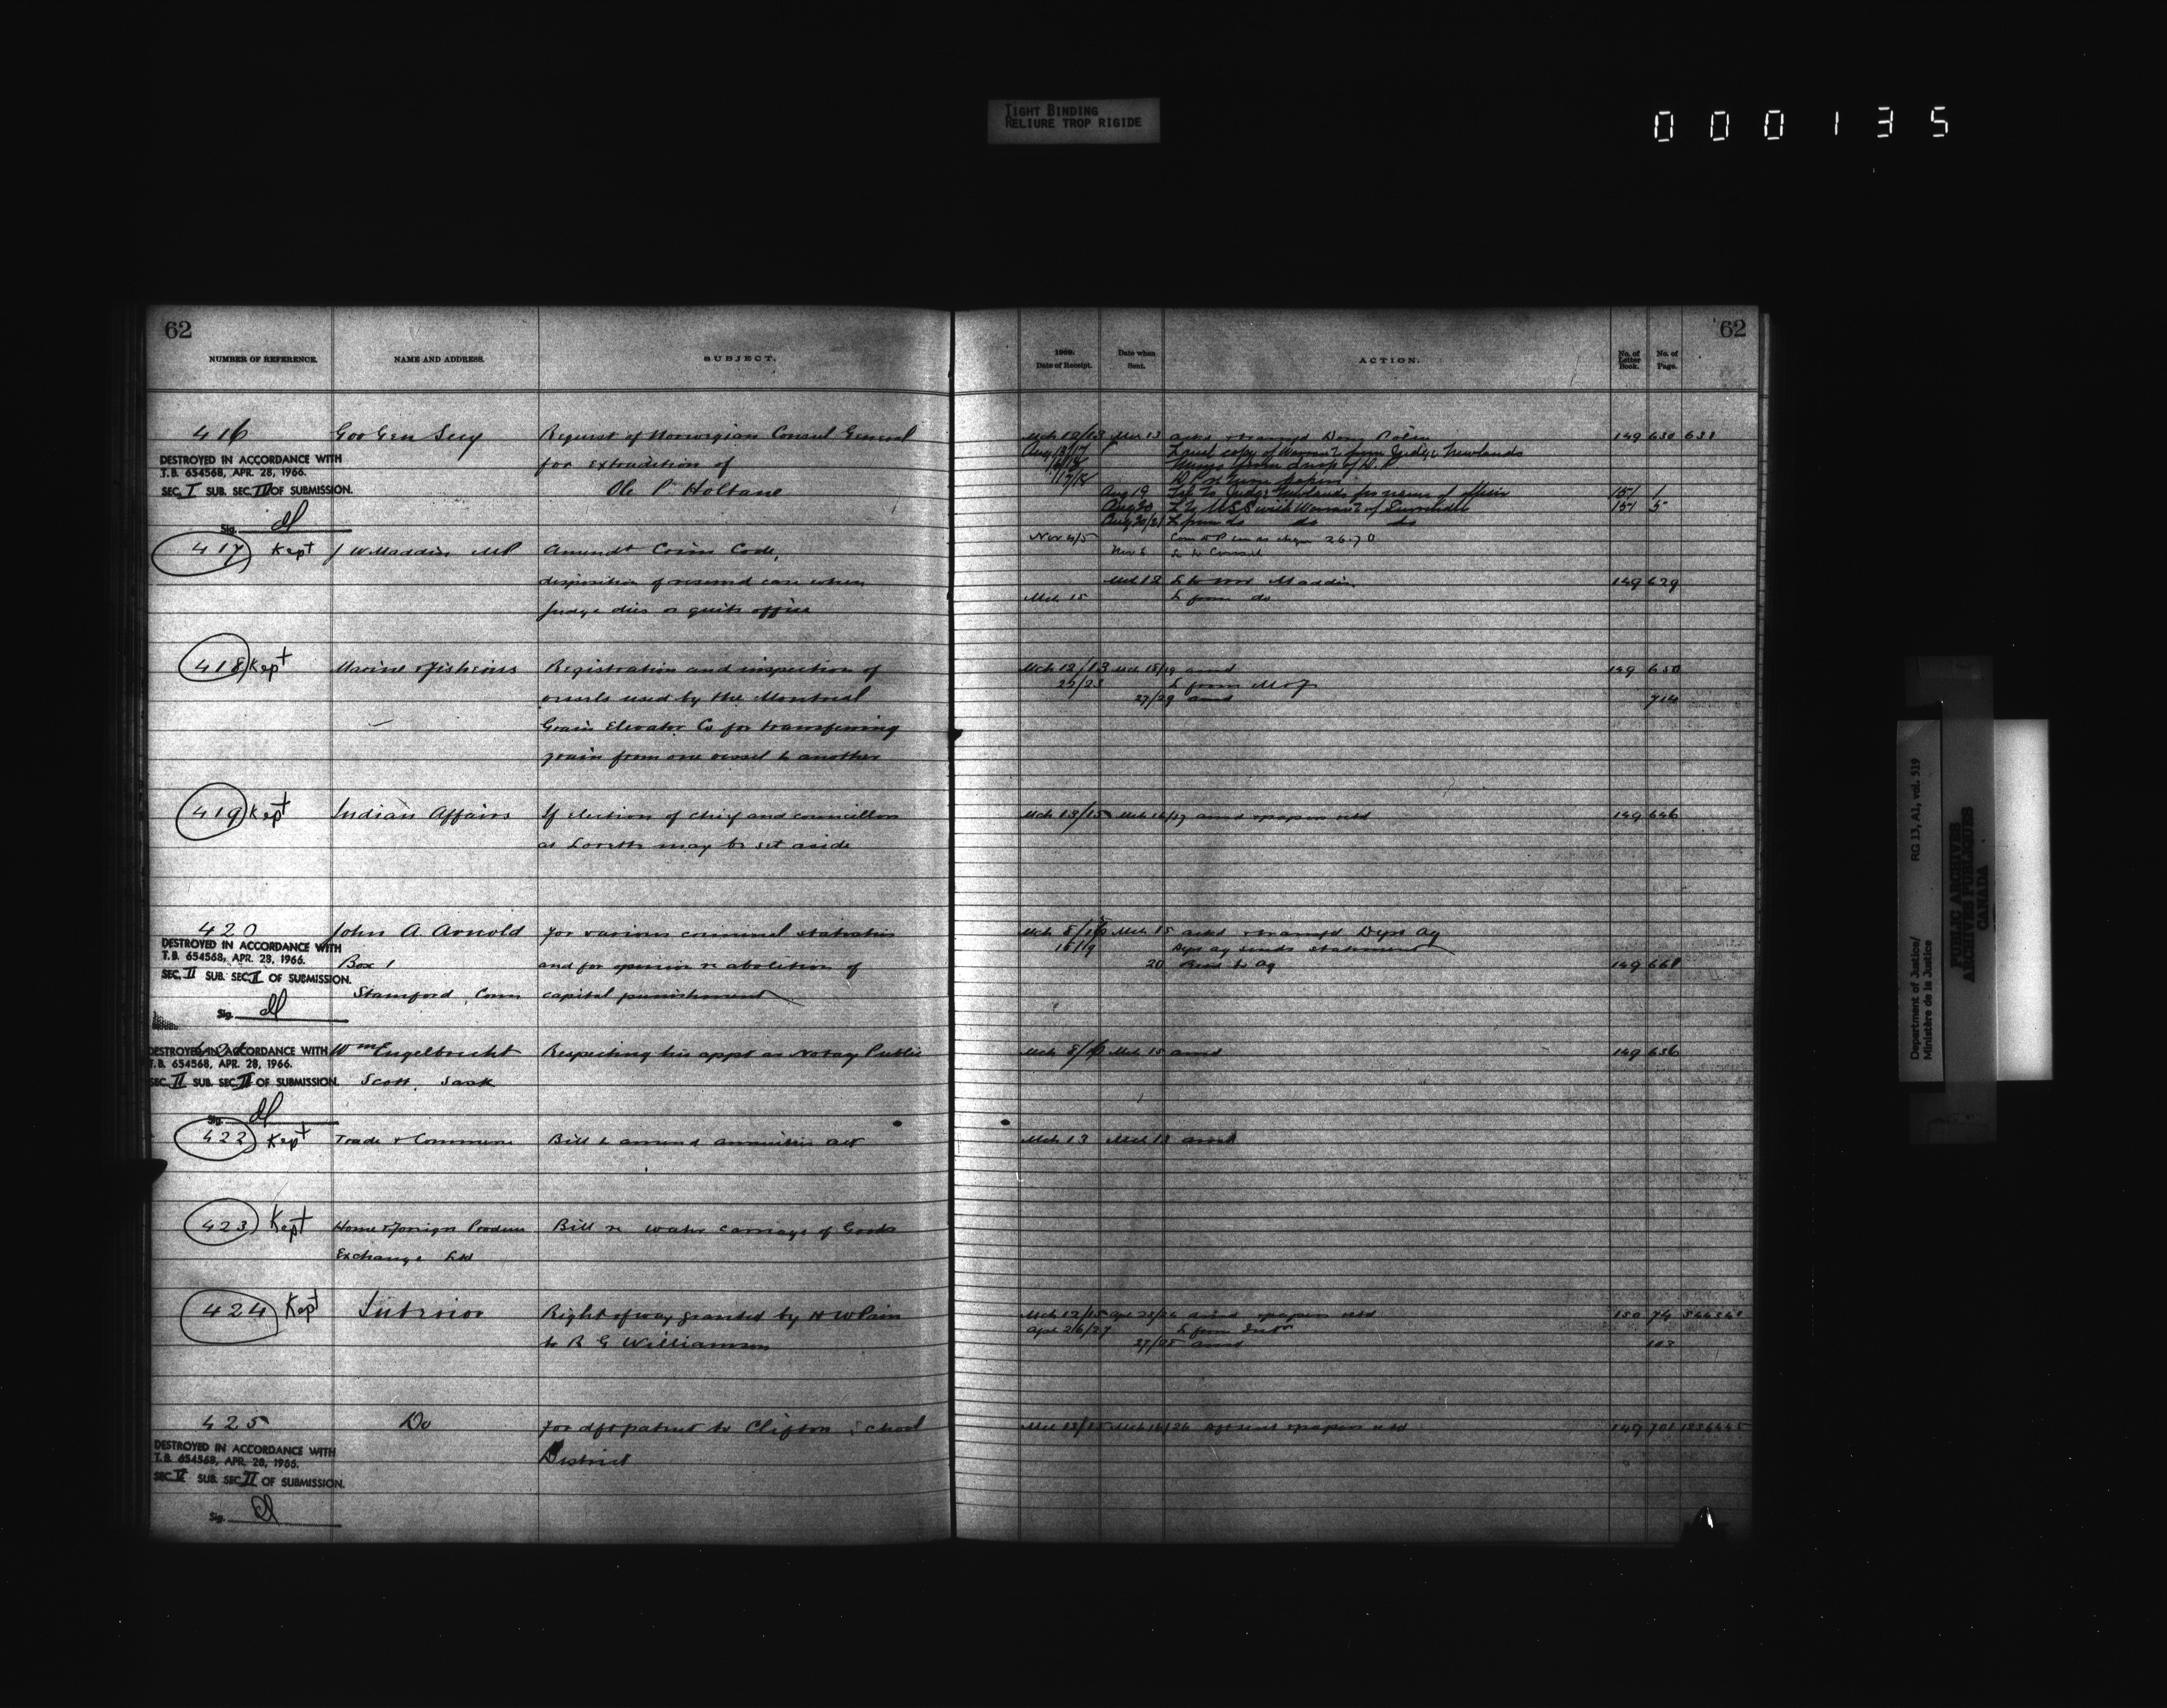 TIGHT BINDING
RELIURE TROP RIGIDE
000135
62
62
NUMBER OF REFERENCE.
NAME AND ADDRESS.
SUBJECT.
1909.
Date of Receipt.
Date when
Sent.
ACTION.
No. of
Letter
Book.
No. of
Page.
416
Gov Gen Secy
Request of Norwegian Consul General
for extradition of
Ole P. Holtane
DESTROYED IN ACCORDANCE WITH
T.B. 654568, APR. 28, 1966.
SEC. I SUB. SEC. III OF SUBMISSION.
Sig.
Mch 12/13 Mch 13
149 630 631
L encl copy of Warrant from Judge Newlands
Aug 19 Tel to Judge Newlands for name of officer 151 1
Aug 20 L to USS with Warrant of Surrender 151 5
Nov 4/5
Nov 6 L to Consul
417 Kept
J W Maddin MP
Amendt Crim Code,
disposition of reserved case when
Judge dies or quits office
Mch 12 L to Maddin 149 629
Mch 15 L from do
418 Kept
Marine & Fisheries
Registration and inspection of
vessels used by the Montreal
Grain Elevator Co for transferring
grain from one vessel to another
Mch 12/13 Mch 15/19 ansd 149 650
22/23 L from M & F
27/29 ansd 714
419 Kept
Indian Affairs
If election of chief and councillors
at Lorette may be set aside
Mch 13/15 Mch 16/17 ansd & papers retd 149 646
420
John A. Arnold
Box 1
Stamford, Conn
For various criminal statistics
and for opinion re abolition of
capital punishment
DESTROYED IN ACCORDANCE WITH
T.B. 654568, APR. 28, 1966.
SEC. II SUB. SEC. II OF SUBMISSION.
Sig.
Mch 15 ackd & transfd Dept Ag
Dept Ag sends statement
20 149 668
421
Wm Engelbrecht
Scott, Sask
Respecting his appt as Notary Public
DESTROYED IN ACCORDANCE WITH
T.B. 654568, APR. 28, 1966.
SEC. II SUB. SEC. II OF SUBMISSION.
Sig.
Mch 15 ansd 149 636
422 Kept
Trade & Commerce
Bill to amend annuities act
Mch 13 Mch 13 ansd
423 Kept
Home & Foreign Produce
Exchange Ltd
Bill re water carriage of Goods
424 Kept
Interior
Right of way granted by H W Pain
to R G Williamson
Mch 12/15 ansd & papers retd 150 74
Apl 26/27 L from Intr
ansd 103
425
Do
For dft patent to Clifton School
District
DESTROYED IN ACCORDANCE WITH
T.B. 654568, APR. 28, 1966.
SEC. V SUB. SEC. II OF SUBMISSION.
Sig.
Mch 13/15 papers retd 149 701
Department of Justice/
Ministère de la Justice
RG 13, A1, vol. 519
PUBLIC ARCHIVES
ARCHIVES PUBLIQUES
CANADA